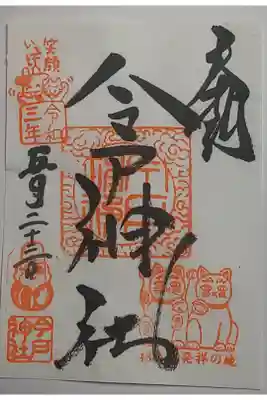 今戸神社
笑顔
いっぱい
令和
三年
五月二十二日
今戸
神社
発祥の地